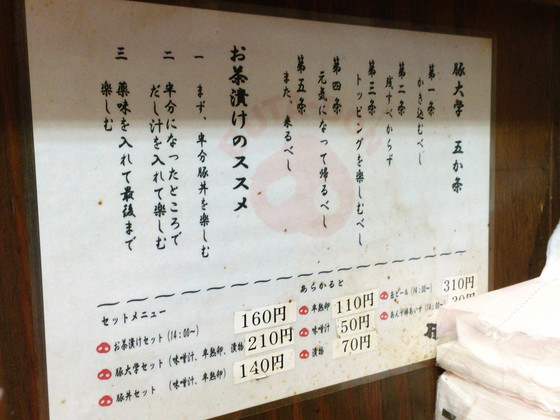 豚大学 五か条
第一条
かき込むべし
第二条
残すべからず
第三条
トッピングを楽しむべし
第四条
元気になって帰るべし
第五条
また、来るべし
お茶漬けのススメ
一 まず、半分豚丼を楽しむ
二 半分になったところで
だし汁を入れて楽しむ
三 薬味を入れて最後まで
楽しむ
セットメニュー
お茶漬けセット(14:00〜) 160円
豚大学セット(味噌汁、半熟卵、漬物) 210円
豚丼セット(味噌汁、半熟卵) 140円
あらかると
半熟卵 110円
味噌汁 50円
漬物 70円
生ビール(14:00〜) 310円